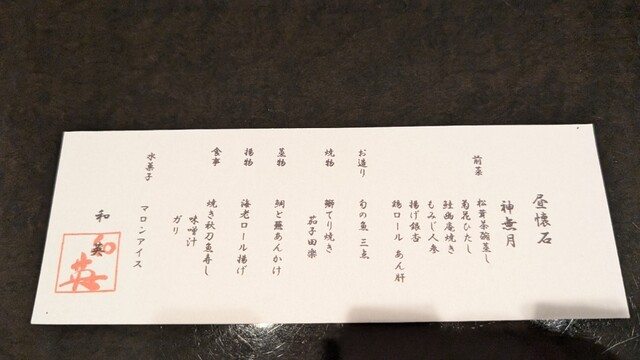 昼懐石
神無月
前菜
松茸茶碗蒸し
菊花ひたし
鮭幽庵焼き
もみじ人参
揚げ銀杏
鶏ロール あん肝
お造り 旬の魚 三点
焼物 鰤てり焼き
茄子田楽
蒸物 鯛と蕪あんかけ
揚物 海老ロール揚げ
食事 焼き秋刀魚寿し
味噌汁
ガリ
水菓子 マロンアイス
和 英